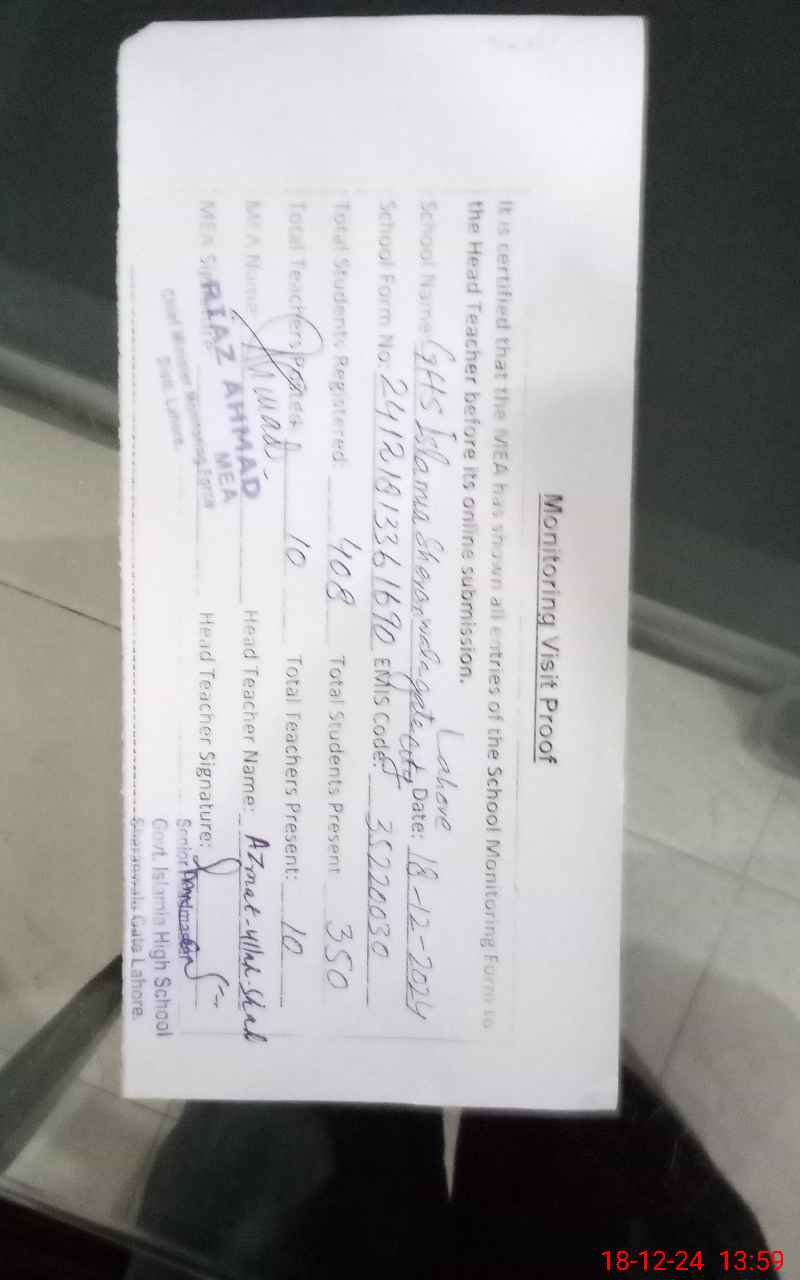 Monitoring Visit Proof
It is certified that the MEA has shown all entries of the School Monitoring Form to
the Head Teacher before its online submission.
Lahore
School Name: GHS Islamia Sheranwala gate city Date: 18-12-2024
School Form No: 24121813361690 EMIS Code: 35220030
Total Students Registered: 408 Total Students Present 350
Total Teachers Posted: 10 Total Teachers Present: 10
MEA Name: Head Teacher Name: Azmat-Ullah-Shah
MEA Signature Head Teacher Signature:
RIAZ AHMAD
MEA
Chief Minister Monitoring Force
Distt. Lahore.
Senior Headmaster
Govt. Islamia High School
Sheranwala Gate Lahore.
18-12-24 13:59